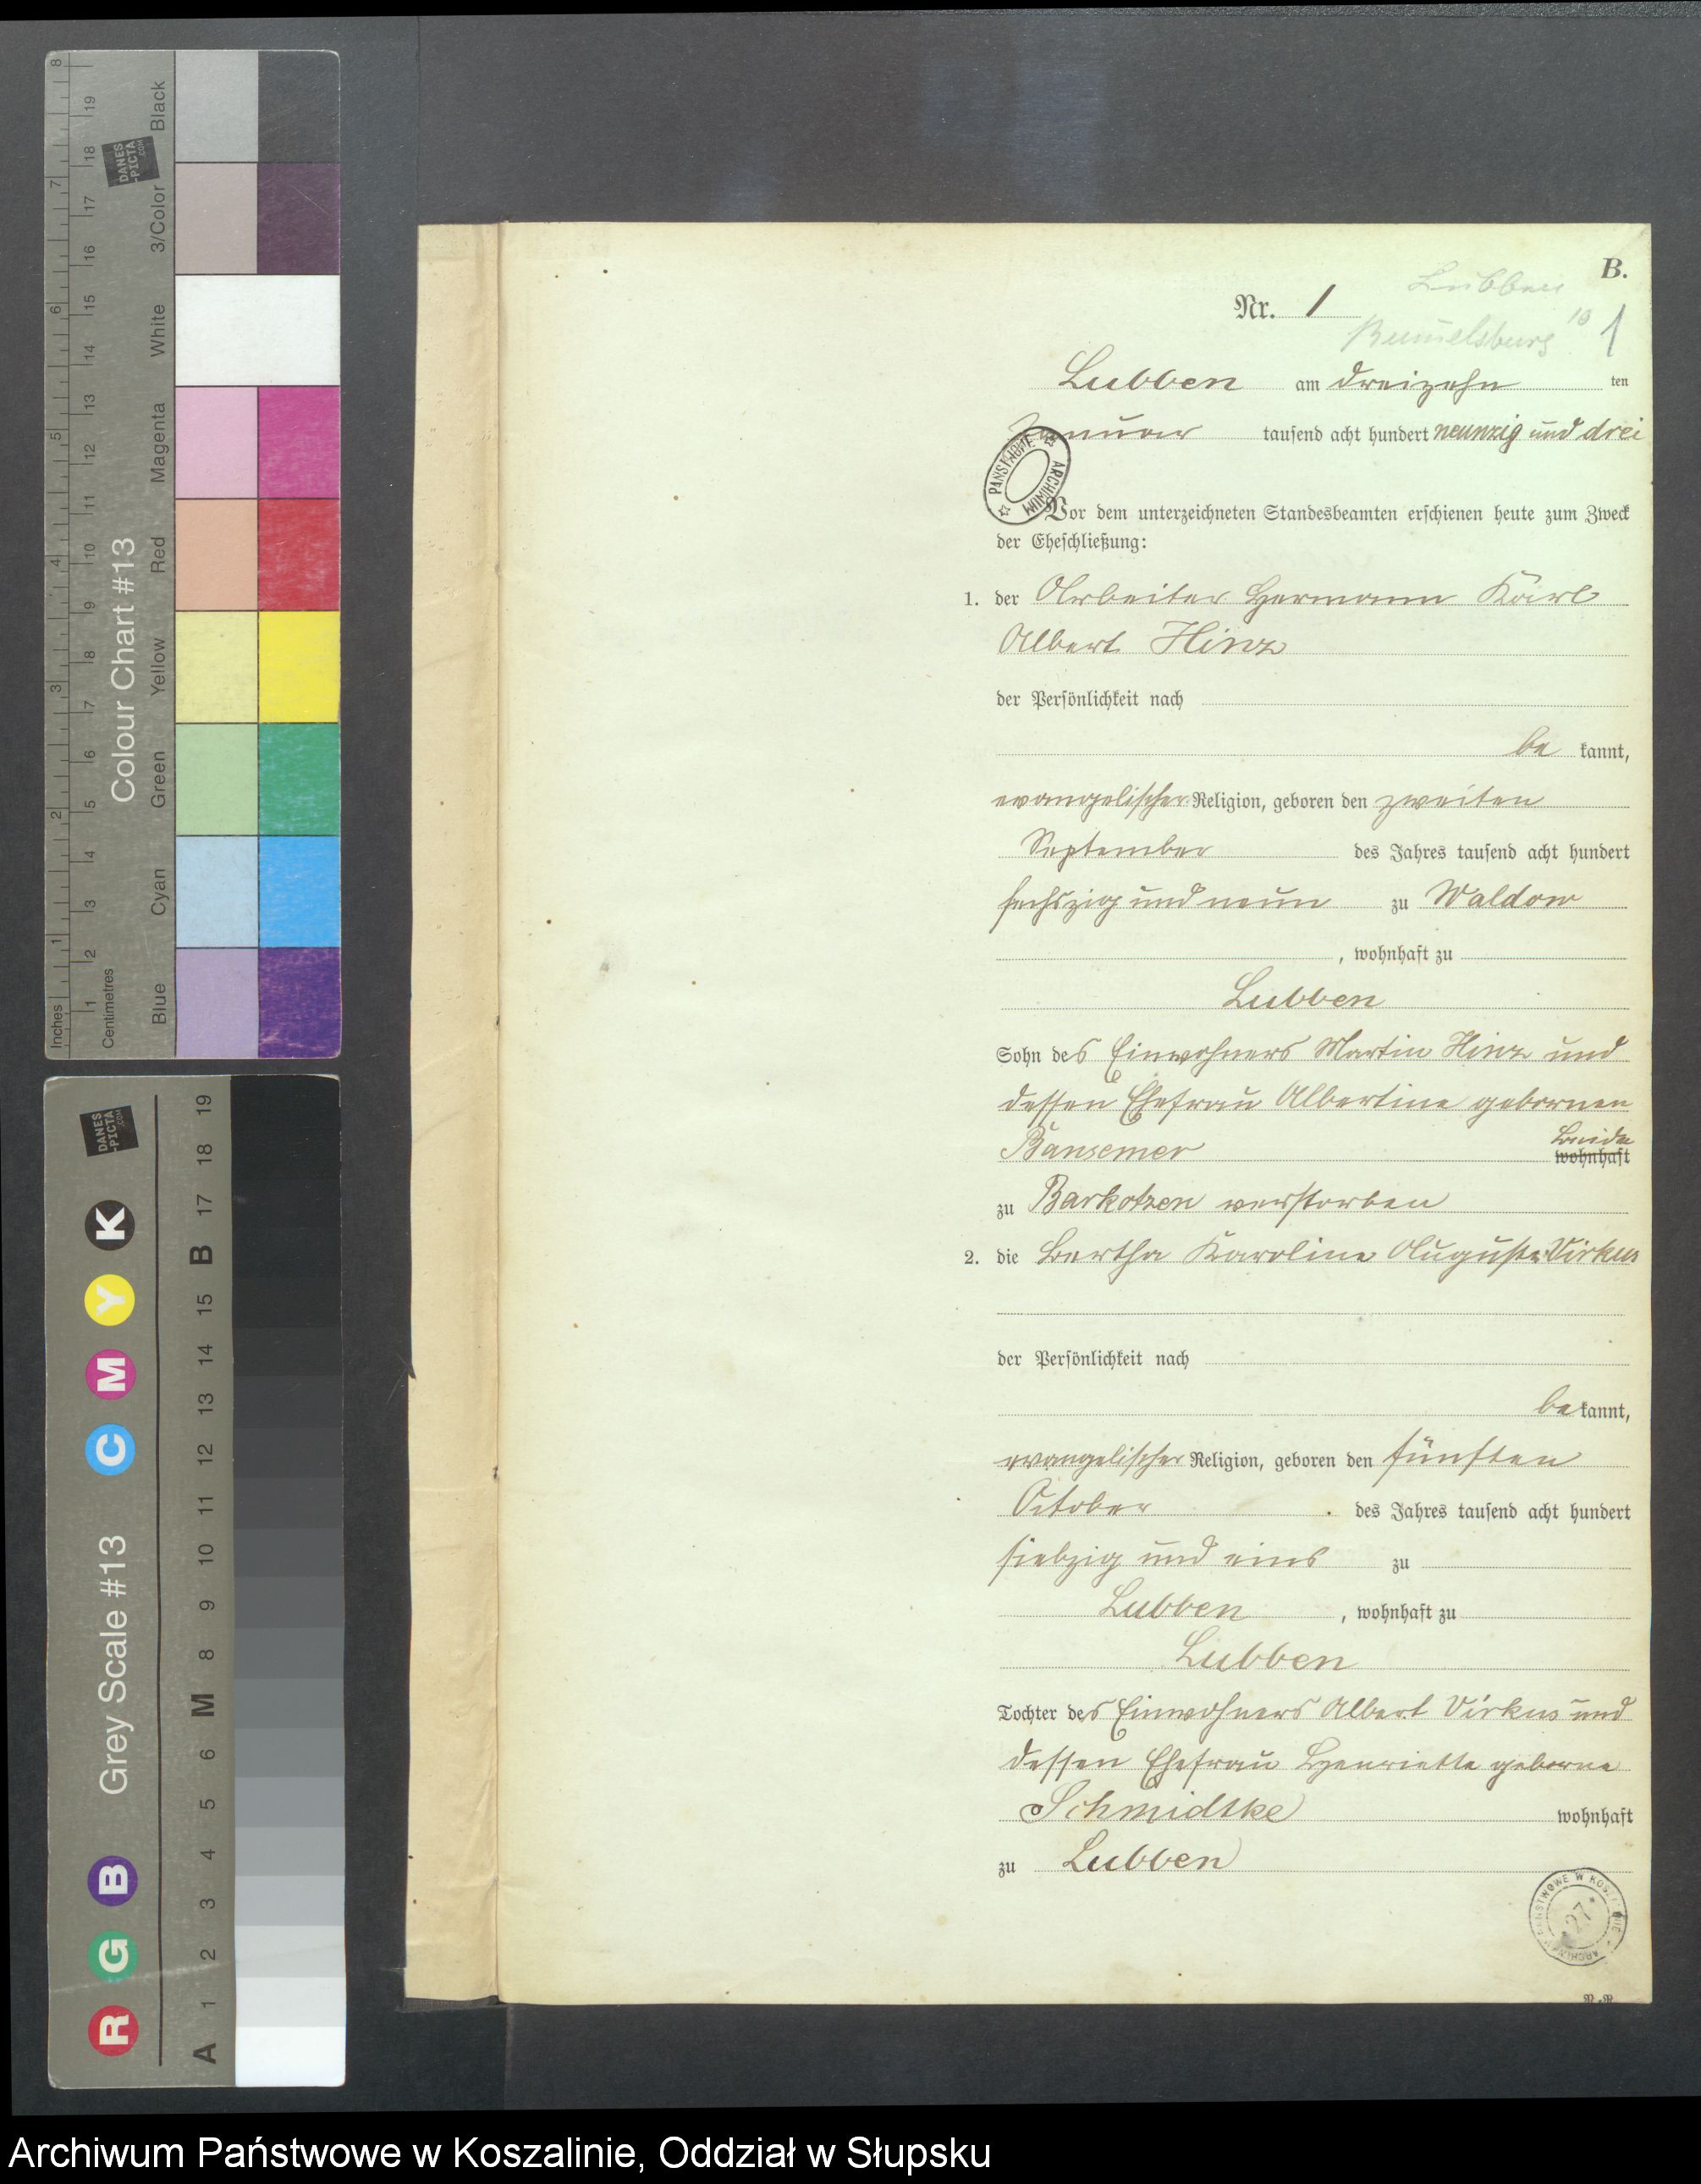 B.
Lubben
Nr. 1
Rummelsburg 10 1
Lubben am dreizehn ten
Januar tausend acht hundert neunzig und drei
PAŃSTWOWE ARCHIWUM
Vor dem unterzeichneten Standesbeamten erschienen heute zum Zweck
der Eheschließung:
1. der Arbeiter Hermann Karl
Albert Hinz
der Persönlichkeit nach
be kannt,
evangelischer Religion, geboren den zweiten
September des Jahres tausend acht hundert
sechszig und neun zu Waldow
, wohnhaft zu
Lubben
Sohn des Einwohners Martin Hinz und
dessen Ehefrau Albertine gebornen
Bansemer beide wohnhaft
zu Barkotzen verstorben
2. die Bertha Karoline Auguste Virkus
der Persönlichkeit nach
be kannt,
evangelischer Religion, geboren den fünften
October des Jahres tausend acht hundert
siebzig und eins zu
Lubben, wohnhaft zu
Lubben
Tochter des Einwohners Albert Virkus und
dessen Ehefrau Henriette geborne
Schmidtke wohnhaft
zu Lubben
ARCHIWUM PAŃSTWOWE W KOSZALINIE
27
Inches 1 2 3 4 5 6 7 8
Centimetres 1 2 3 4 5 6 7 8 9 10 11 12 13 14 15 16 17 18 19
Colour Chart #13
Blue Cyan Green Yellow Red Magenta White 3/Color Black
DANES
-PICTA
.COM
Grey Scale #13
R G B C M Y K
A 1 2 3 4 5 6 M 8 9 10 11 12 13 14 15 B 17 18 19
DANES
-PICTA
.COM
Archiwum Państwowe w Koszalinie, Oddział w Słupsku